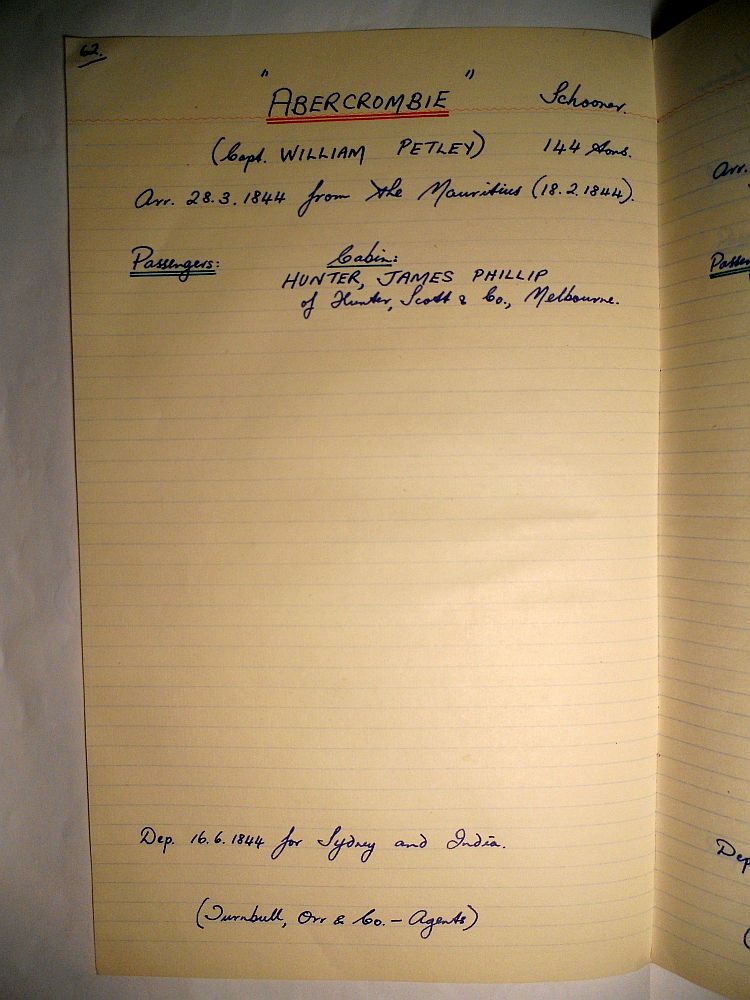 62.
" ABERCROMBIE " Schooner.
(Capt. WILLIAM PETLEY) 144 tons.
Arr. 28.3.1844 from the Mauritius (18.2.1844).
Passengers: Cabin:
HUNTER, JAMES PHILLIP
of Hunter, Scott & Co., Melbourne.
Dep. 16.6.1844 for Sydney and India.
(Turnbull, Orr & Co. - Agents)
Arr.
Passen
Dep
(